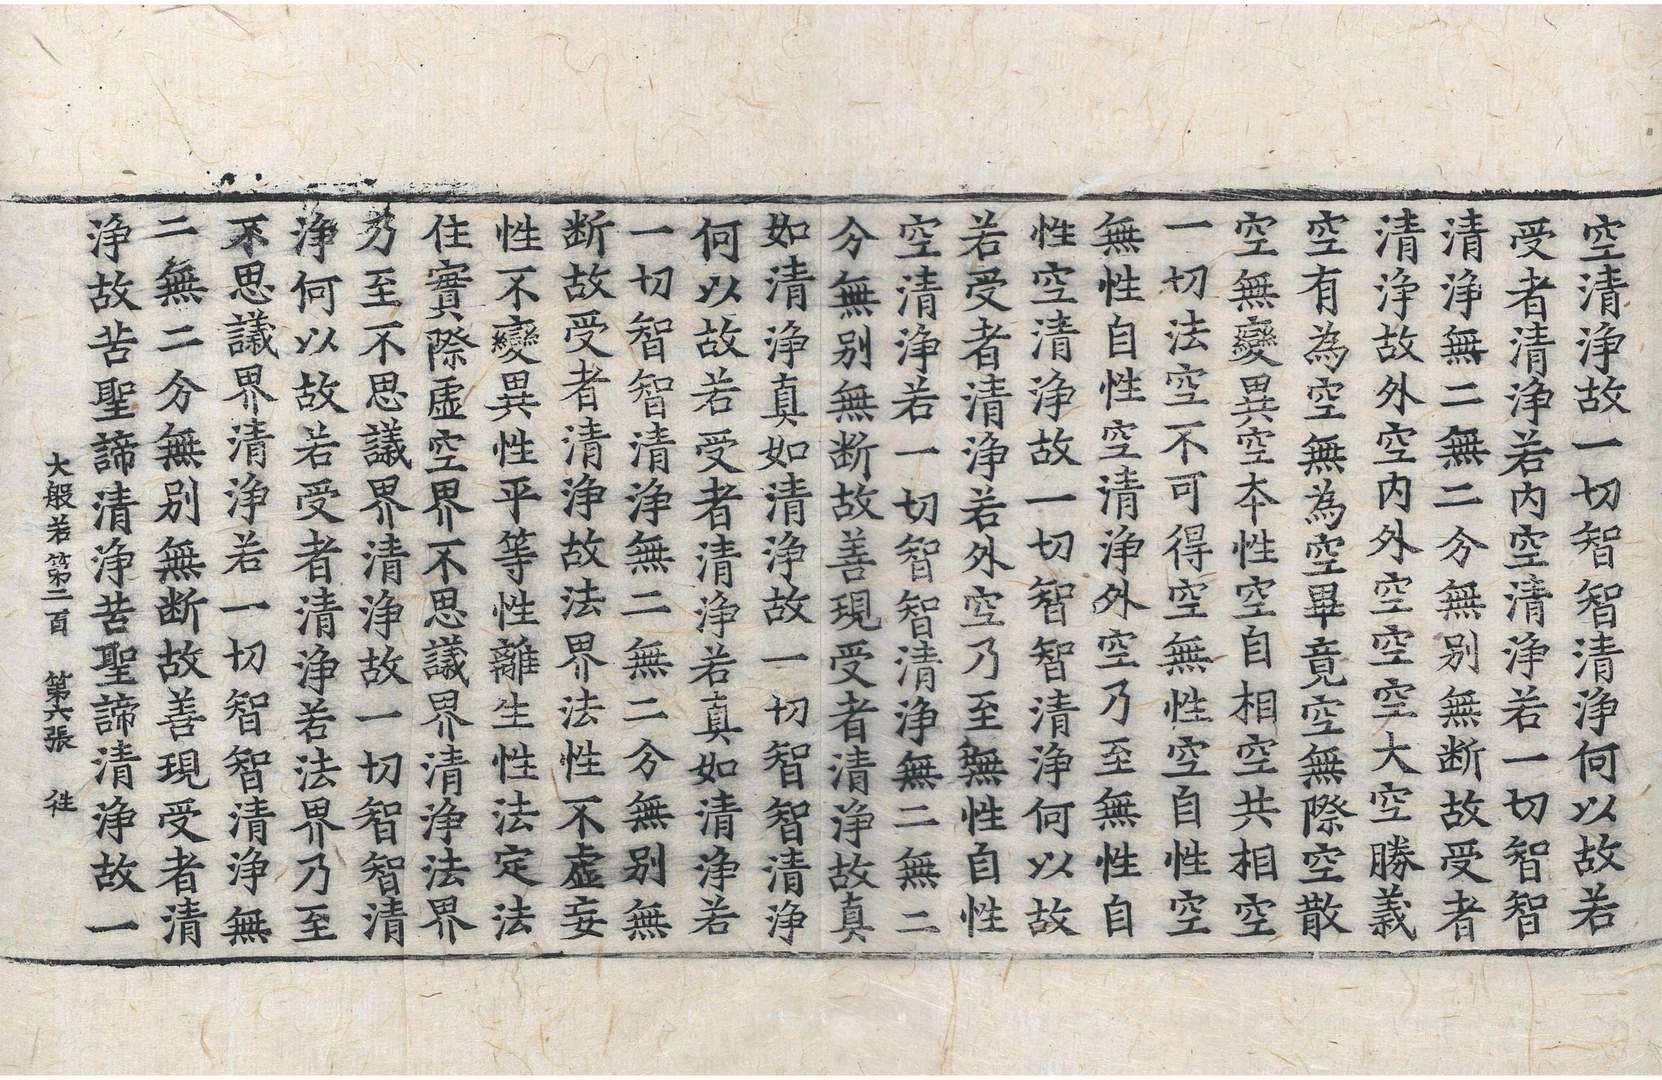 空清淨故一切智智清淨何以故若
受者清淨若內空清淨若一切智智
清淨無二無二分無別無斷故受者
清淨故外空內外空空空大空勝義
空有為空無為空畢竟空無際空散
空無變異空本性空自相空共相空
一切法空不可得空無性空自性空
無性自性空清淨外空乃至無性自
性空清淨故一切智智清淨何以故
若受者清淨若外空乃至無性自性
空清淨若一切智智清淨無二無二
分無別無斷故善現受者清淨故真
如清淨真如清淨故一切智智清淨
何以故若受者清淨若真如清淨若
一切智智清淨無二無二分無別無
斷故受者清淨故法界法性不虛妄
性不變異性平等性離生性法定法
住實際虛空界不思議界清淨法界
乃至不思議界清淨故一切智智清
淨何以故若受者清淨若法界乃至
不思議界清淨若一切智智清淨無
二無二分無別無斷故善現受者清
淨故苦聖諦清淨苦聖諦清淨故一
大般若第二百 第六張